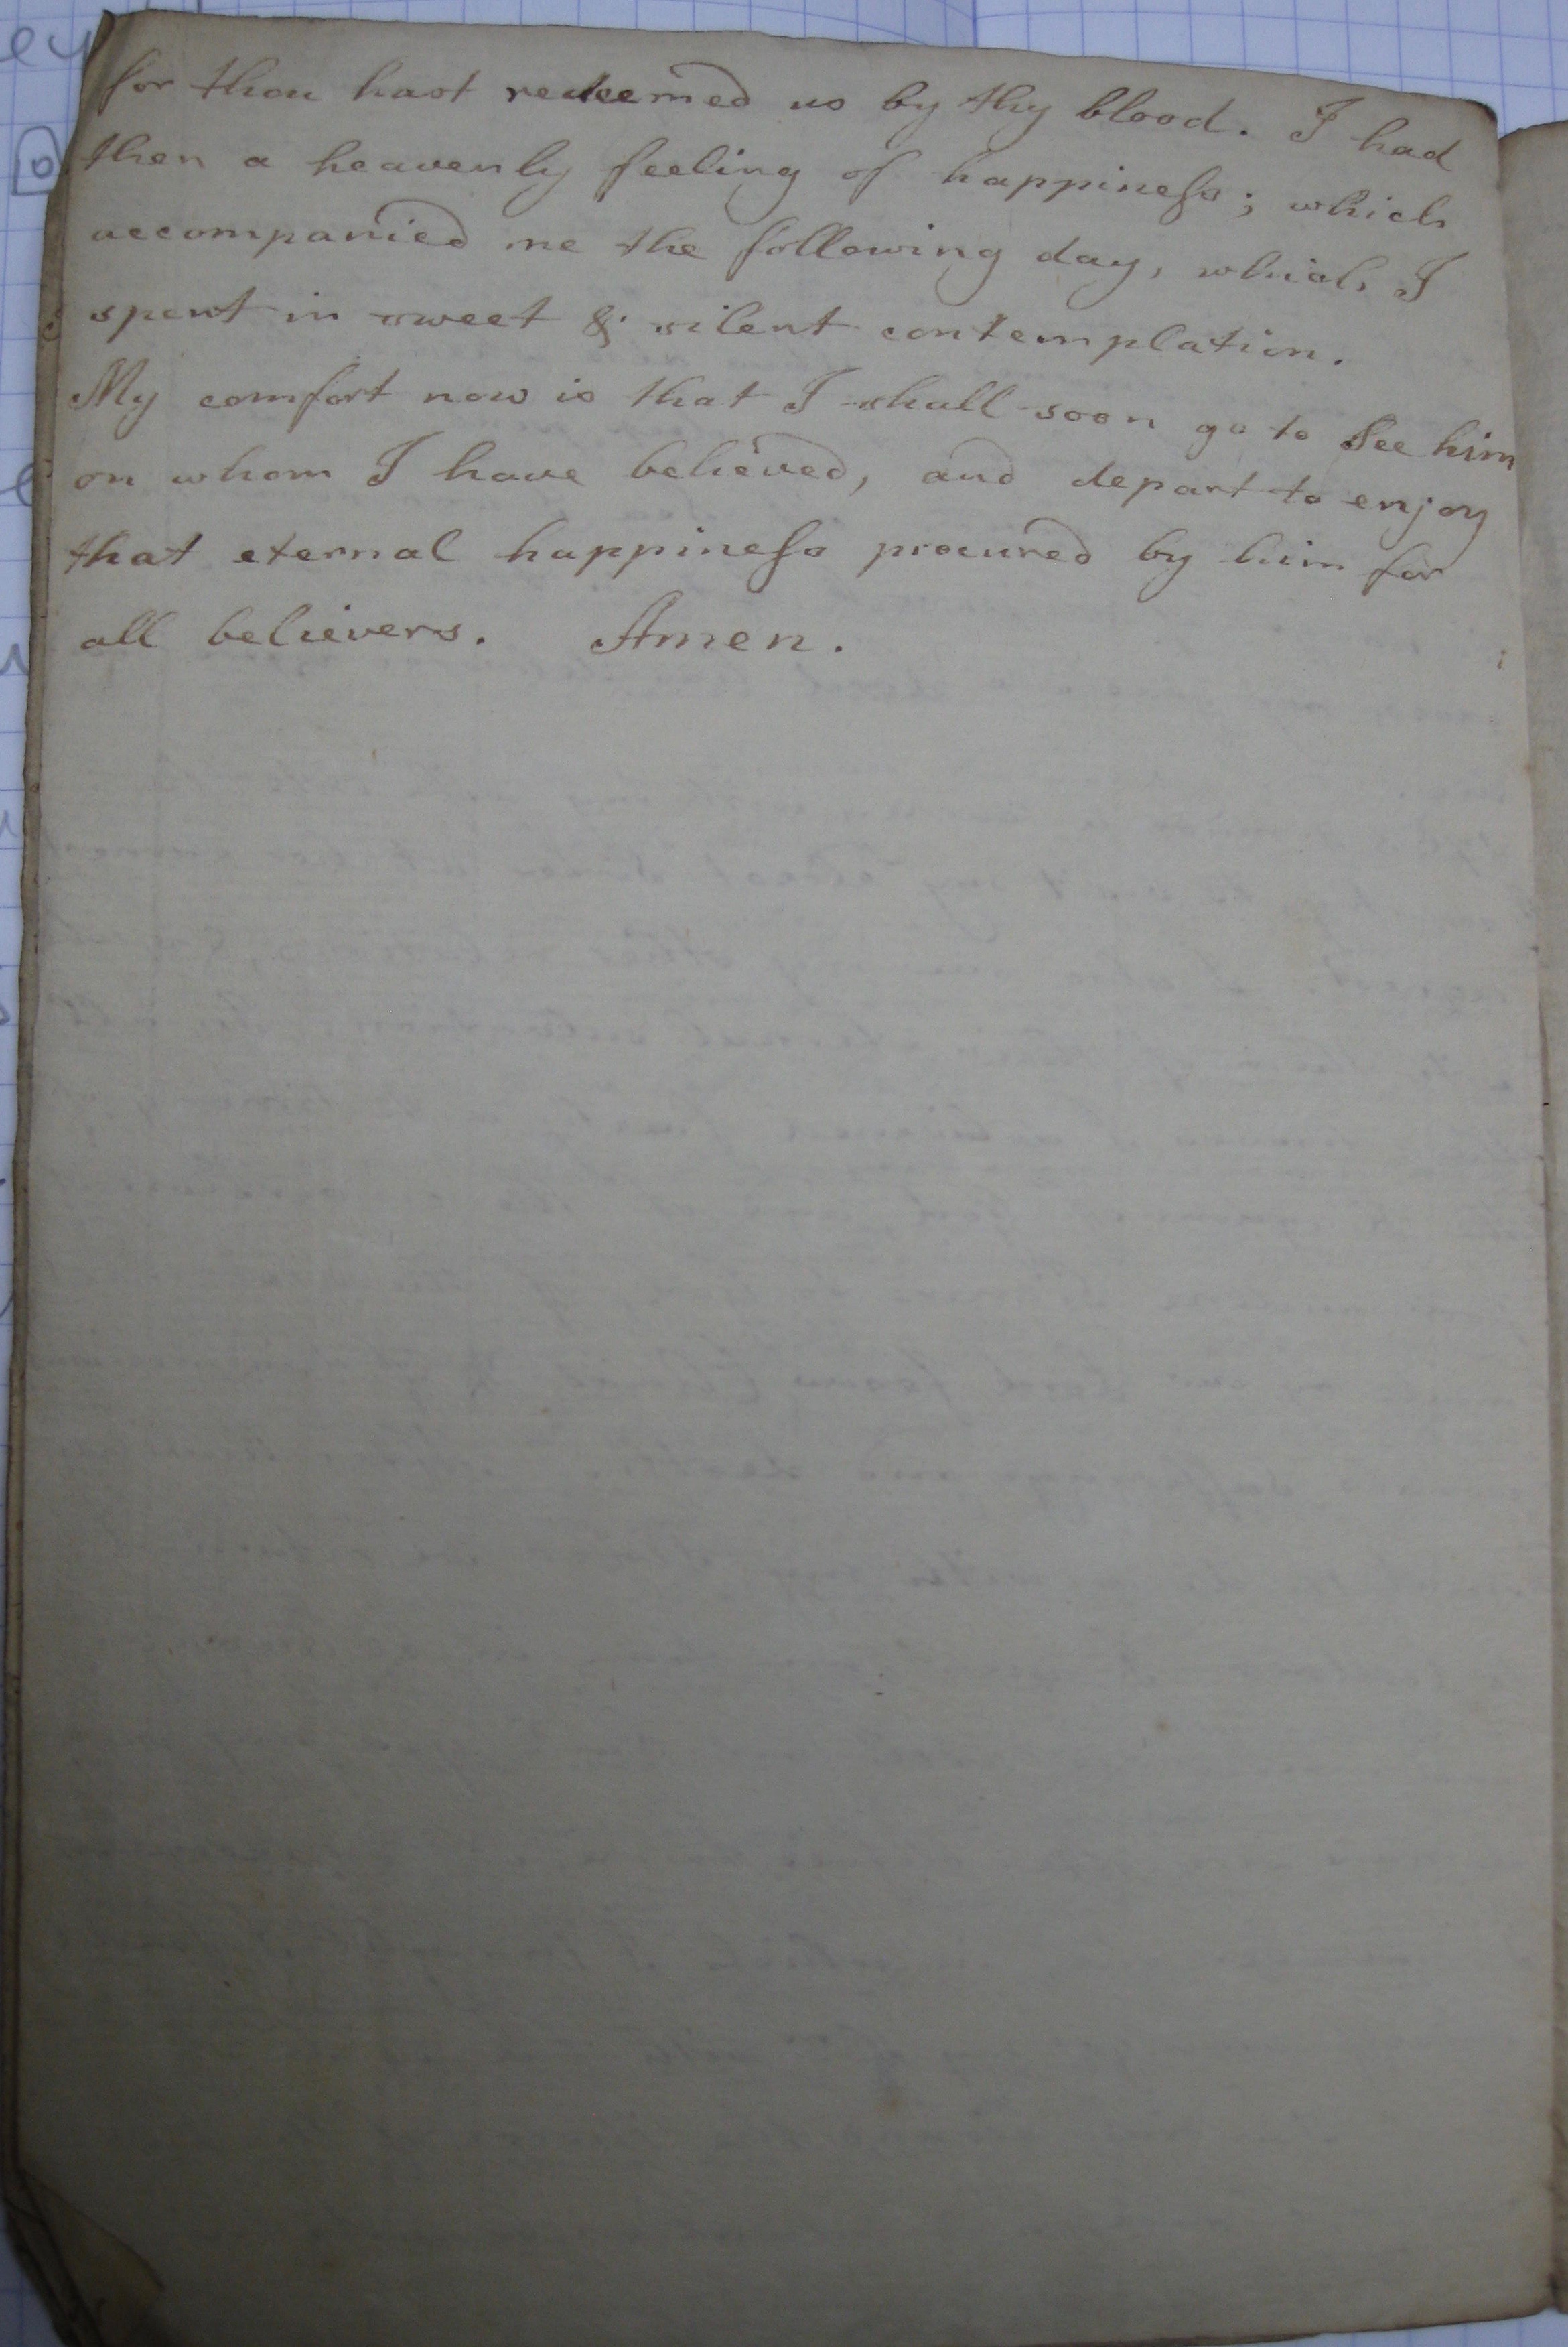 for thou hast redeemed us by thy blood. I had
then a heavenly feeling of happiness; which
accompanied me the following day, which I
spent in sweet & silent contemplation.
My comfort now is that I shall soon go to See him
on whom I have believed, and depart to enjoy
that eternal happiness procured by him for
all believers. Amen.